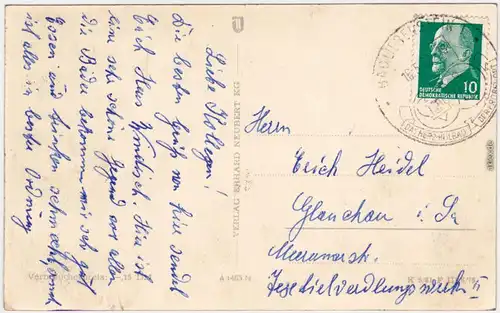 Liebe Kollegen!
Die besten Grüße von hier sendet
Euch Hans Windisch. Hier ist
eine sehr schöne Gegend vor allem
die Bäder bekommen mir sehr gut
Essen und trinken schmeckt und
ist alles in bester Ordnung
VERLAG ERHARD NEUBERT KG
A 1463 N
DEUTSCHE
DEMOKRATISCHE REPUBLIK
10
Herrn
Erich Heidel
Glauchau i. Sa
Meeranerstr.
II